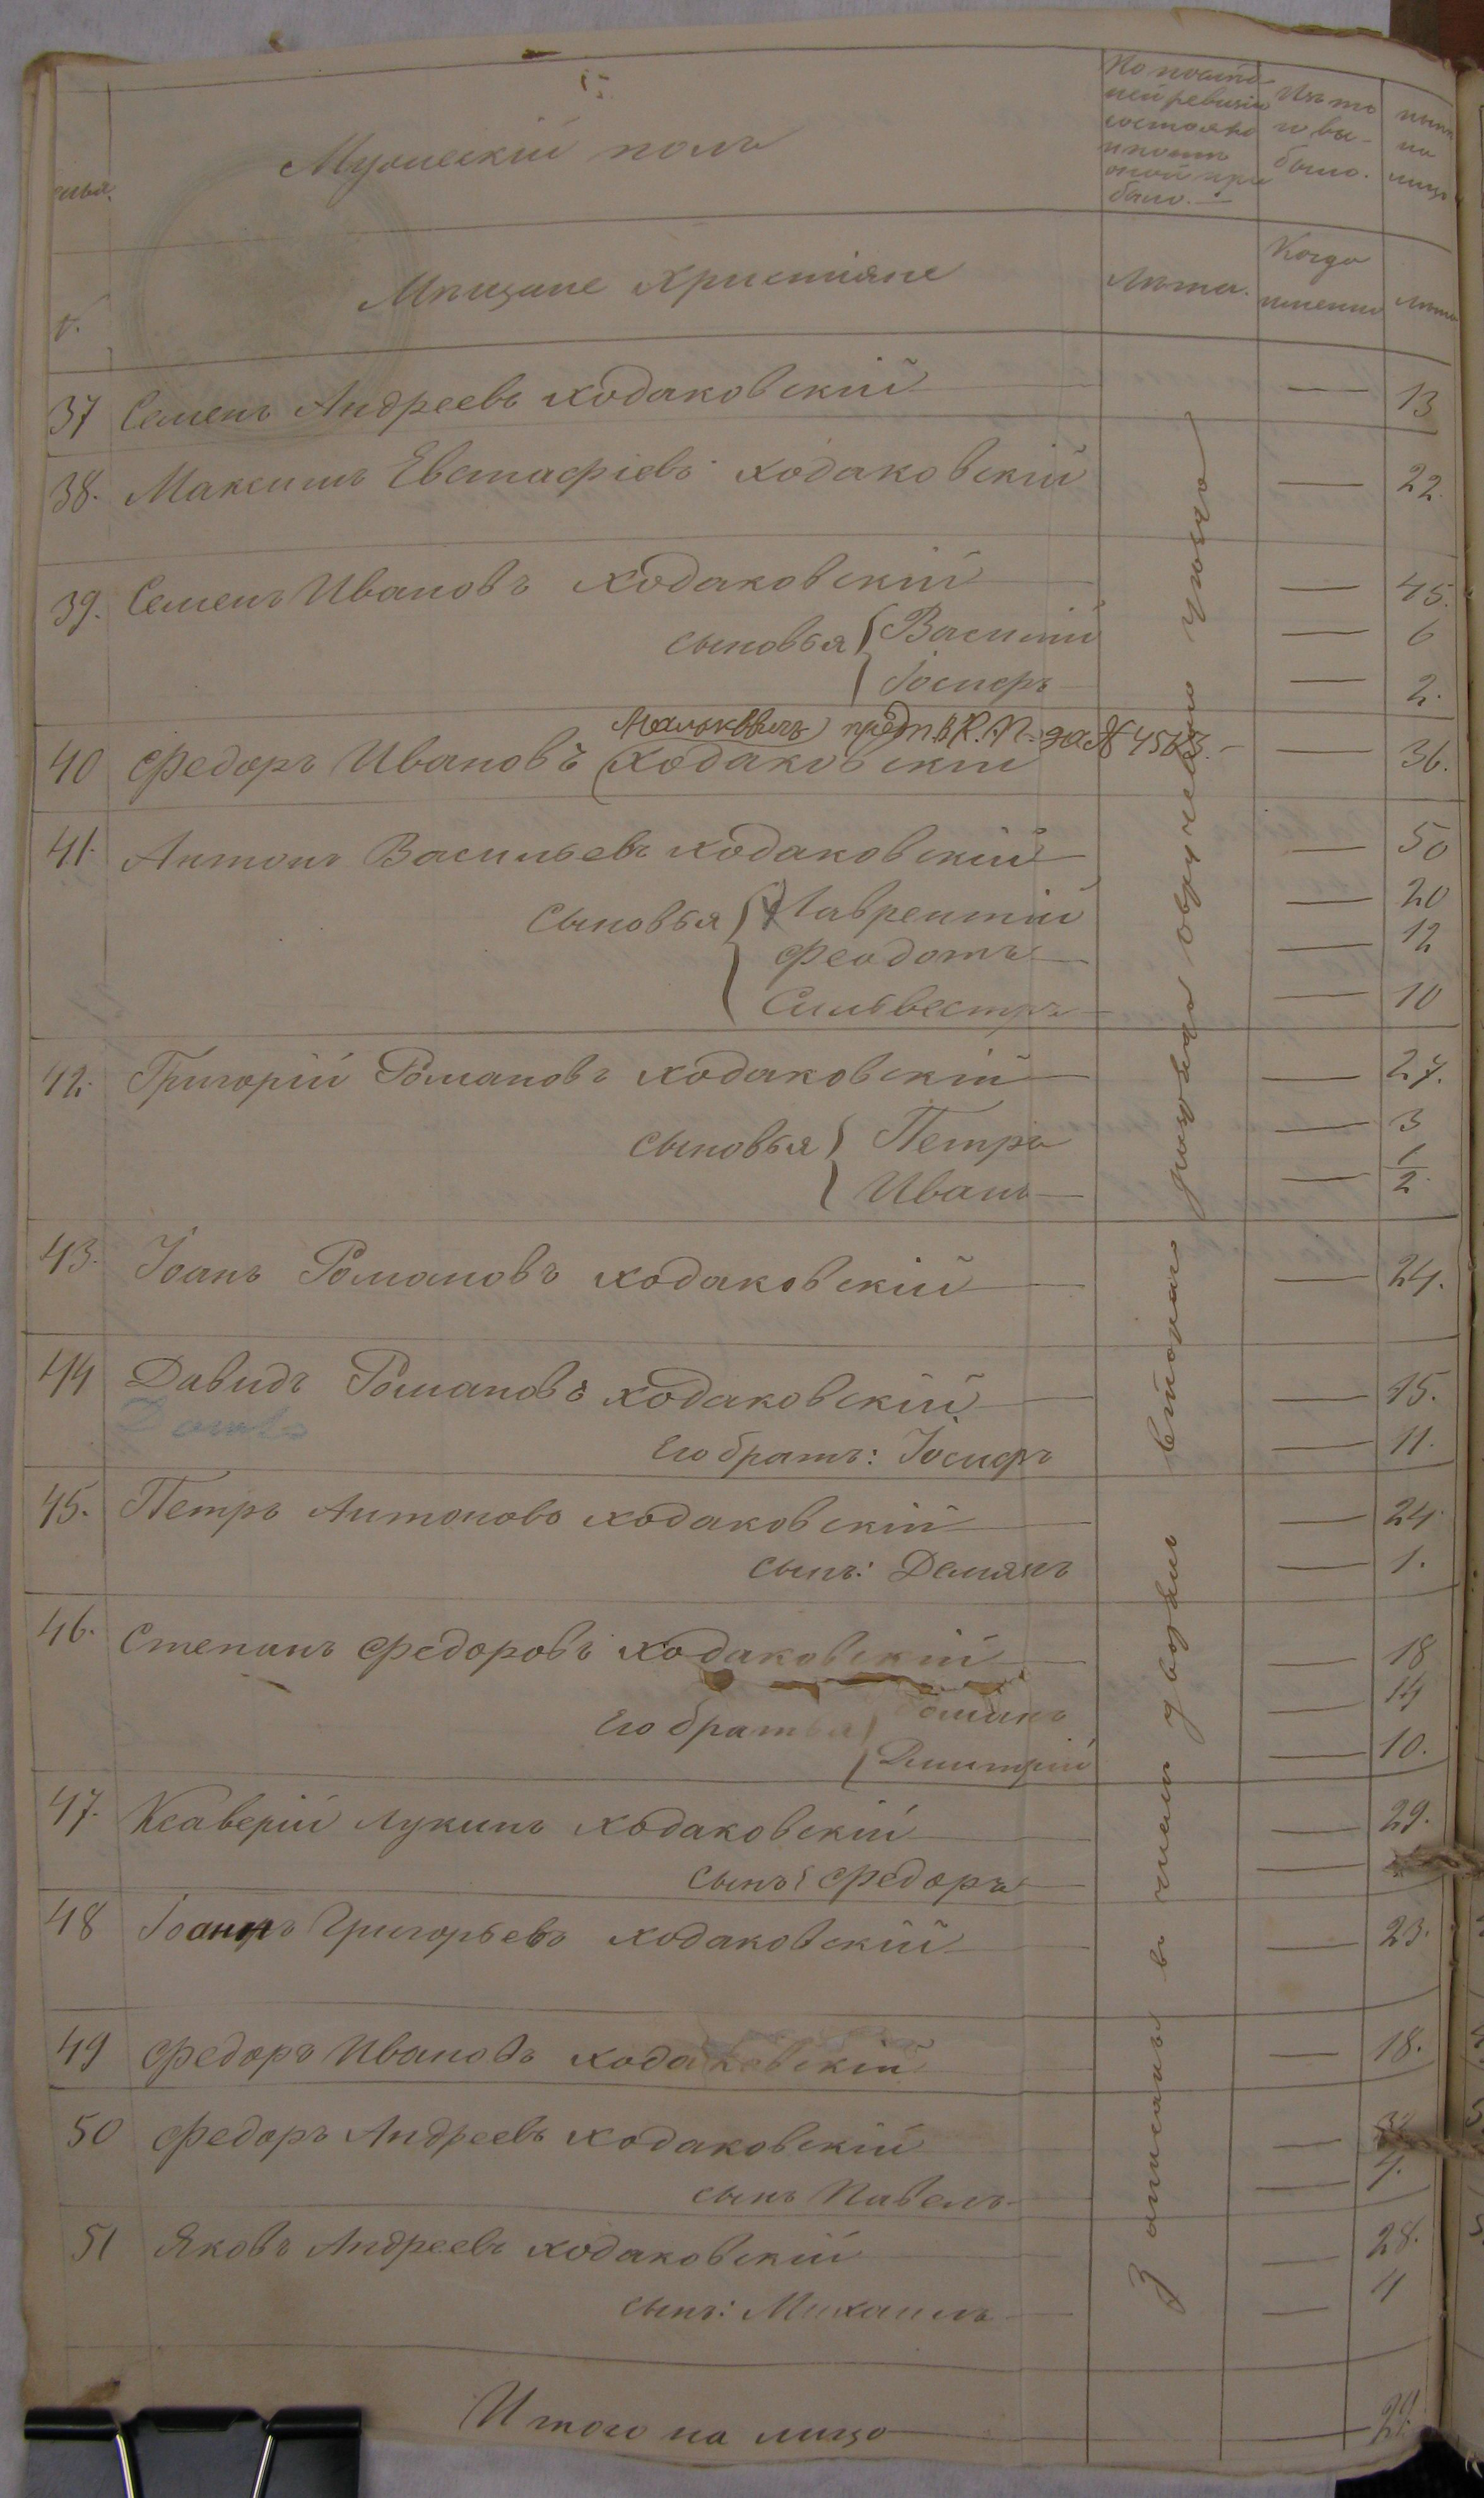 Мужескій полъ
По послѣд-
ней ревизіи
состояло
и послѣ
оной при
было.
Изъ то
и вы-
было.
нынѣ
на
лицо
Мѣщане Христіяне
Лѣта.
Когда
именно
лѣта
37 Семенъ Андреевъ Ходаковскій — 13
38. Максимъ Евстафіевъ Ходаковскій — 22.
39. Семенъ Ивановъ Ходаковскій — 45.
сыновья Василій — 6
Іосифъ — 2.
40 Федоръ Ивановъ (Ходаковскій — 36.
41. Антонъ Васильевъ Ходаковскій — 50
Сыновья Лаврентій — 20
Феодотъ — 12
Сильвестръ — 10
42. Григорій Романовъ Ходаковскій — 27.
сыновья Петръ — 3
Иванъ — 1/2
43. Іоанъ Романовъ Ходаковскій — 24.
44 Давидъ Романовъ Ходаковскій — 15.
Его братъ: Іосифъ — 11.
45. Петръ Антоновъ Ходаковскій — 24
сынъ: Демянъ — 1.
46. Степанъ Федоровъ Ходаковскій — 18
Его братья — 14
Дмитрій — 10.
47. Ксаверій Лукинъ Ходаковскій — 29.
сынъ: Федоръ —
48 Григорьевъ Ходаковскій — 23.
49 Федоръ Ивановъ Ходаковскій — 18.
50 Федоръ Андреевъ Ходаковскій —
сынъ Павелъ —
51 Яковъ Андреевъ Ходаковскій — 28.
сынъ: Михаилъ — 4
Итого на лицо —
Записаны въ число дворянъ втораго разряда овручскаго уѣзда